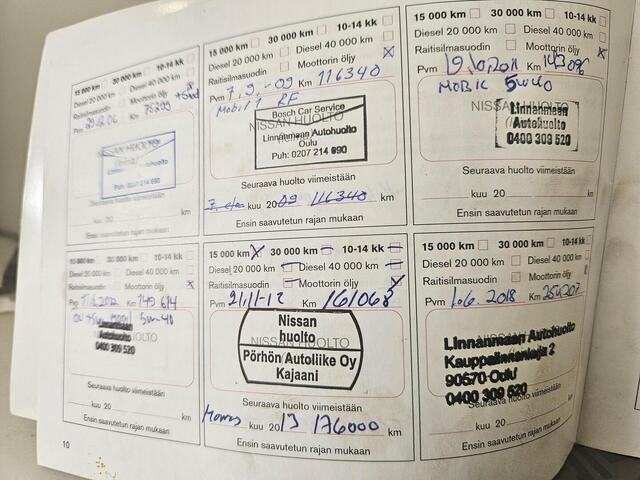 15 000 km 30 000 km 10-14 kk
Diesel 20 000 km Diesel 40 000 km
Raitisilmasuodin Moottorin öljy
Pvm 29.12.06 Km 75299
NISSAN HUOLTO
Puh: 0207 214 690
Seuraava huolto viimeistään
kuu 20 km
Ensin saavutetun rajan mukaan
15 000 km 30 000 km 10-14 kk
Diesel 20 000 km Diesel 40 000 km
Raitisilmasuodin Moottorin öljy
Pvm 7.9.-09 Km 116340
Mobil 1
Bosch Car Service
NISSAN HUOLTO
Linnanmaan Autohuolto
Oulu
Puh: 0207 214 690
Seuraava huolto viimeistään
kuu 2009 116340 km
Ensin saavutetun rajan mukaan
15 000 km 30 000 km 10-14 kk
Diesel 20 000 km Diesel 40 000 km
Raitisilmasuodin Moottorin öljy
Pvm Km 143096
5w40
NISSAN
Linnanmaan
Autohuolto
0400 309 520
Seuraava huolto viimeistään
kuu 20 km
Ensin saavutetun rajan mukaan
15 000 km 30 000 km 10-14 kk
Diesel 20 000 km Diesel 40 000 km
Raitisilmasuodin Moottorin öljy
Pvm Km 149 614
5w-40
Linnanmaan
Autohuolto
0400 309 520
NISSAN HUOLTO
Seuraava huolto viimeistään
kuu 20 km
Ensin saavutetun rajan mukaan
10
15 000 km 30 000 km 10-14 kk
Diesel 20 000 km Diesel 40 000 km
Raitisilmasuodin Moottorin öljy
Pvm 21.11-12 Km 161068
Nissan
huolto
NISSAN HUOLTO
Pörhön Autoliike Oy
Kajaani
Seuraava huolto viimeistään
Marras kuu 2013 176000 km
Ensin saavutetun rajan mukaan
15 000 km 30 000 km 10-14 kk
Diesel 20 000 km Diesel 40 000 km
Raitisilmasuodin Moottorin öljy
Pvm 1.6.2018 Km 254207
Linnanmaan Autohuolto
Kauppalinnankuja 2
90570 Oulu
0400 309 520
Seuraava huolto viimeistään
kuu 20 km
Ensin saavutetun rajan mukaan